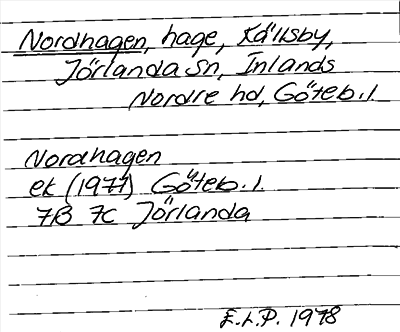 Nordhagen, hage, Källsby,
Jörlanda sn, Inlands
Nordre hd, Göteb. l.
Nordhagen
ek (1977) Göteb. l.
7B 7c Jörlanda
E.L.P. 1978